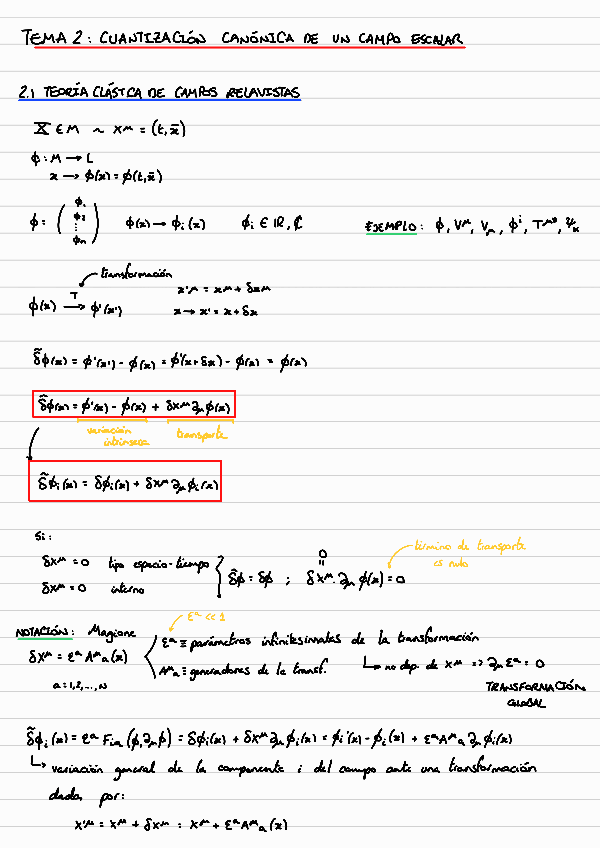 TEMA 2: CUANTIZACIÓN CANÓNICA DE UN CAMPO ESCALAR
2.1 TEORÍA CLÁSICA DE CAMPOS RELAVISTAS
X ∈ M ~ xᵘ = (t, x̄)
ϕ: M → L
x → ϕ(x) = ϕ(t, x̄)
ϕ = (ϕ₁ ϕ₂ ⋮ ϕₙ) ϕ(x) → ϕᵢ(x) ϕᵢ ∈ ℝ, ℂ EJEMPLO: ϕ, Vᵘ, V_μ, ϕⁱ, Tᵘᵛ, Ψ_α
transformación
ϕ(x) →ᵀ ϕ'(x') x'ᵘ = xᵘ + δxᵘ
x → x' = x + δx
δ̃ϕ(x) = ϕ'(x') - ϕ(x) = ϕ'(x+δx) - ϕ(x) = ϕ(x)
δ̃ϕ(x) = ϕ'(x) - ϕ(x) + δxᵘ ∂_μ ϕ(x)
variación intrínseca transporte
δ̃ϕᵢ(x) = δϕᵢ(x) + δxᵘ ∂_μ ϕᵢ(x)
Si:
δxᵘ = 0 tipo espacio-tiempo
δxᵘ = 0 interno
} δ̃ϕ = δϕ ; δxᵘ · ∂_μ ϕ(x) = 0
0
término de transporte
es nulo
εᵃ << 1
NOTACIÓN: Magione
εᵃ ≡ parámetros infinitesimales de la transformación
δxᵘ = εᵃ Aᵘₐ(x)
Aᵘₐ ≡ generadores de la transf. ↳ no dep. de xᵘ => ∂_μ εᵃ = 0
a = 1, 2, ..., N
TRANSFORMACIÓN
GLOBAL
δ̃ϕᵢ(x) = εᵃ Fᵢₐ(ϕ, ∂_μϕ) = δϕᵢ(x) + δxᵘ ∂_μ ϕᵢ(x) = ϕᵢ'(x) - ϕᵢ(x) + εᵃ Aᵘₐ ∂_μ ϕᵢ(x)
↳ variación general de la componente i del campo ante una transformación
dada por:
x'ᵘ = xᵘ + δxᵘ = xᵘ + εᵃ Aᵘₐ(x)